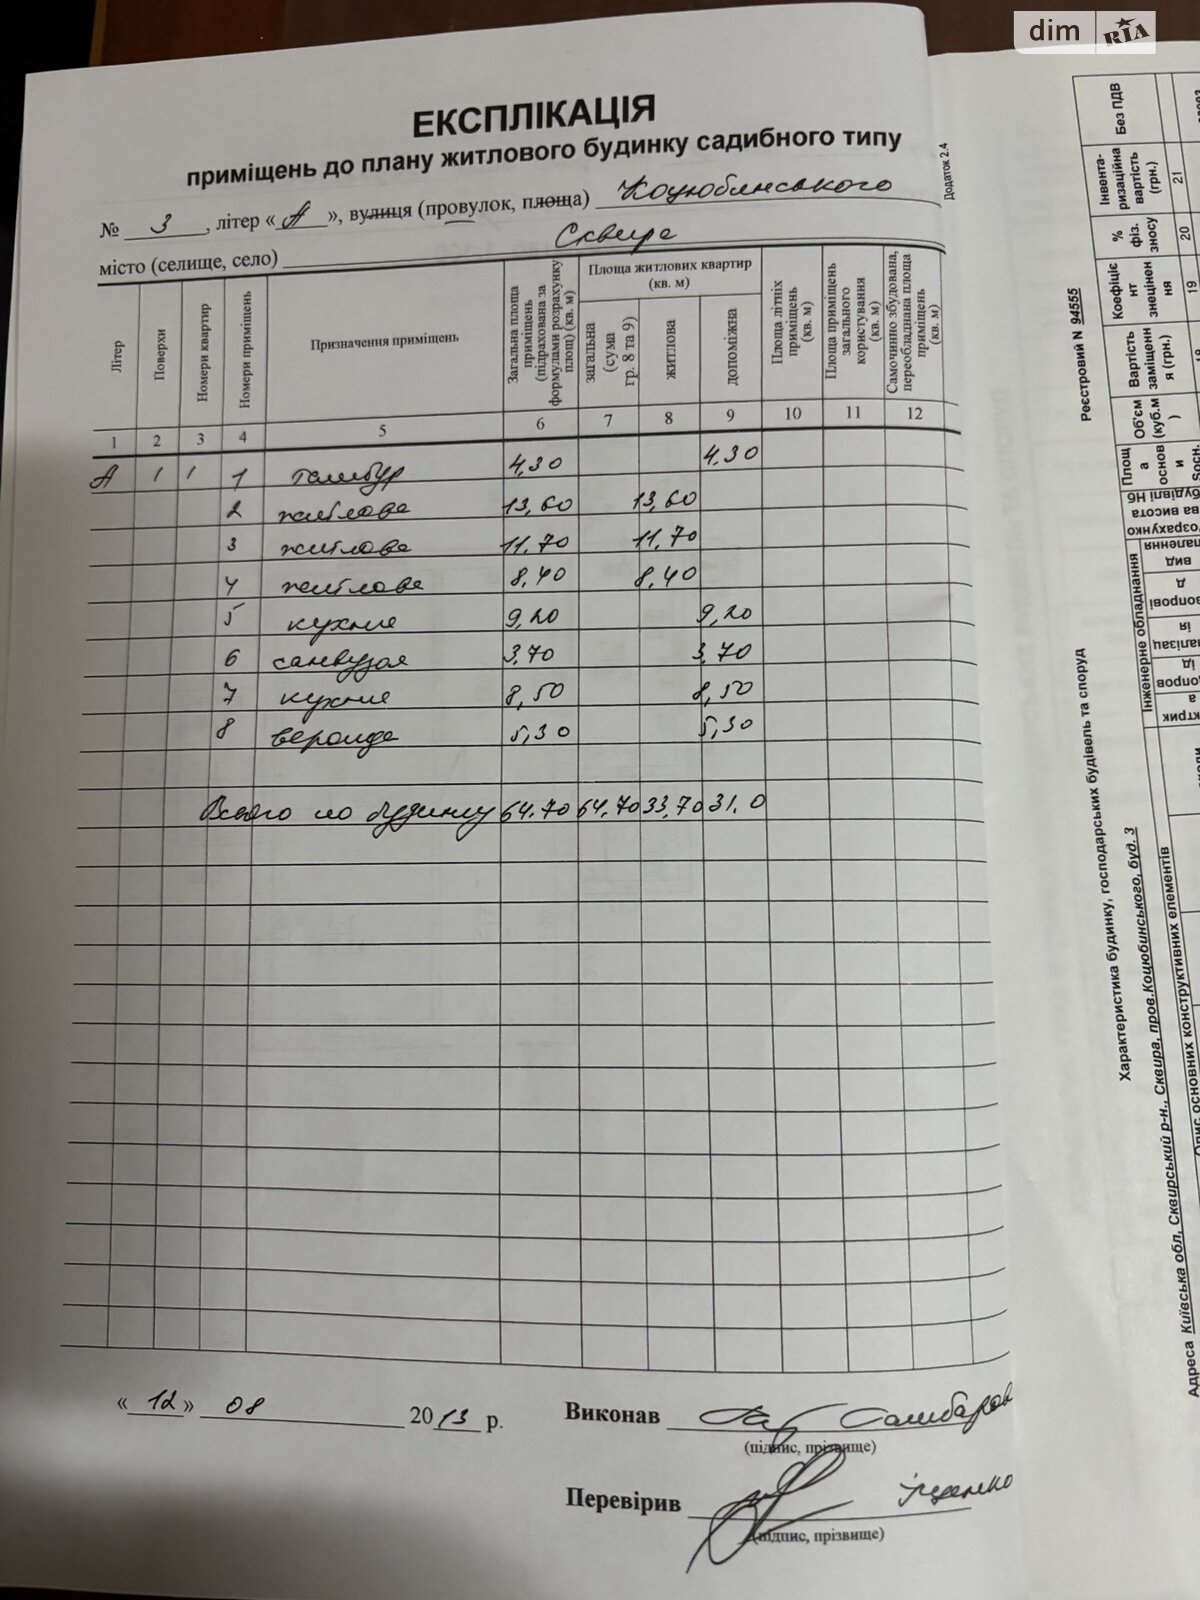 dim RIA
ЕКСПЛІКАЦІЯ
приміщень до плану житлового будинку садибного типу
Додаток 2.4
№ 3, літер «А», вулиця (провулок, площа) Коцюбинського
місто (селище, село) Сквира
Літер
Поверхи
Номери квартир
Номери приміщень
Призначення приміщень
Загальна площа приміщень (підрахована за формулами розрахунку площ) (кв. м)
Площа житлових квартир (кв. м)
загальна (сума гр. 8 та 9)
житлова
допоміжна
Площа літніх приміщень (кв. м)
Площа приміщень загального користування (кв. м)
Самочинно збудована, переобладнана площа приміщень (кв. м)
1 2 3 4 5 6 7 8 9 10 11 12
А 1 1 1 тамбур 4,30 4,30
2 житлова 13,60 13,60
3 житлова 11,70 11,70
4 житлова 8,40 8,40
5 кухня 9,20 9,20
6 санвузол 3,70 3,70
7 кухня 8,50 8,50
8 веранда 5,30 5,30
Всього по будинку 64.70 64.70 33,70 31.0
«12» 08 2013 р.
Виконав
(підпис, прізвище)
Перевірив Іщенко
(підпис, прізвище)
Реєстровий N 94555
Характеристика будинку, господарських будівель та споруд
Адреса Київська обл, Сквирський р-н., Сквира, пров.Коцюбинського, буд. 3
Опис основних конструктивних елементів
Інженерне обладнання
Об'єм (куб.м)
Вартість заміщення (грн.)
Коефіцієнт знецінення
% фіз. зносу
Інвентаризаційна вартість (грн.)
Без ПДВ
19 20 21